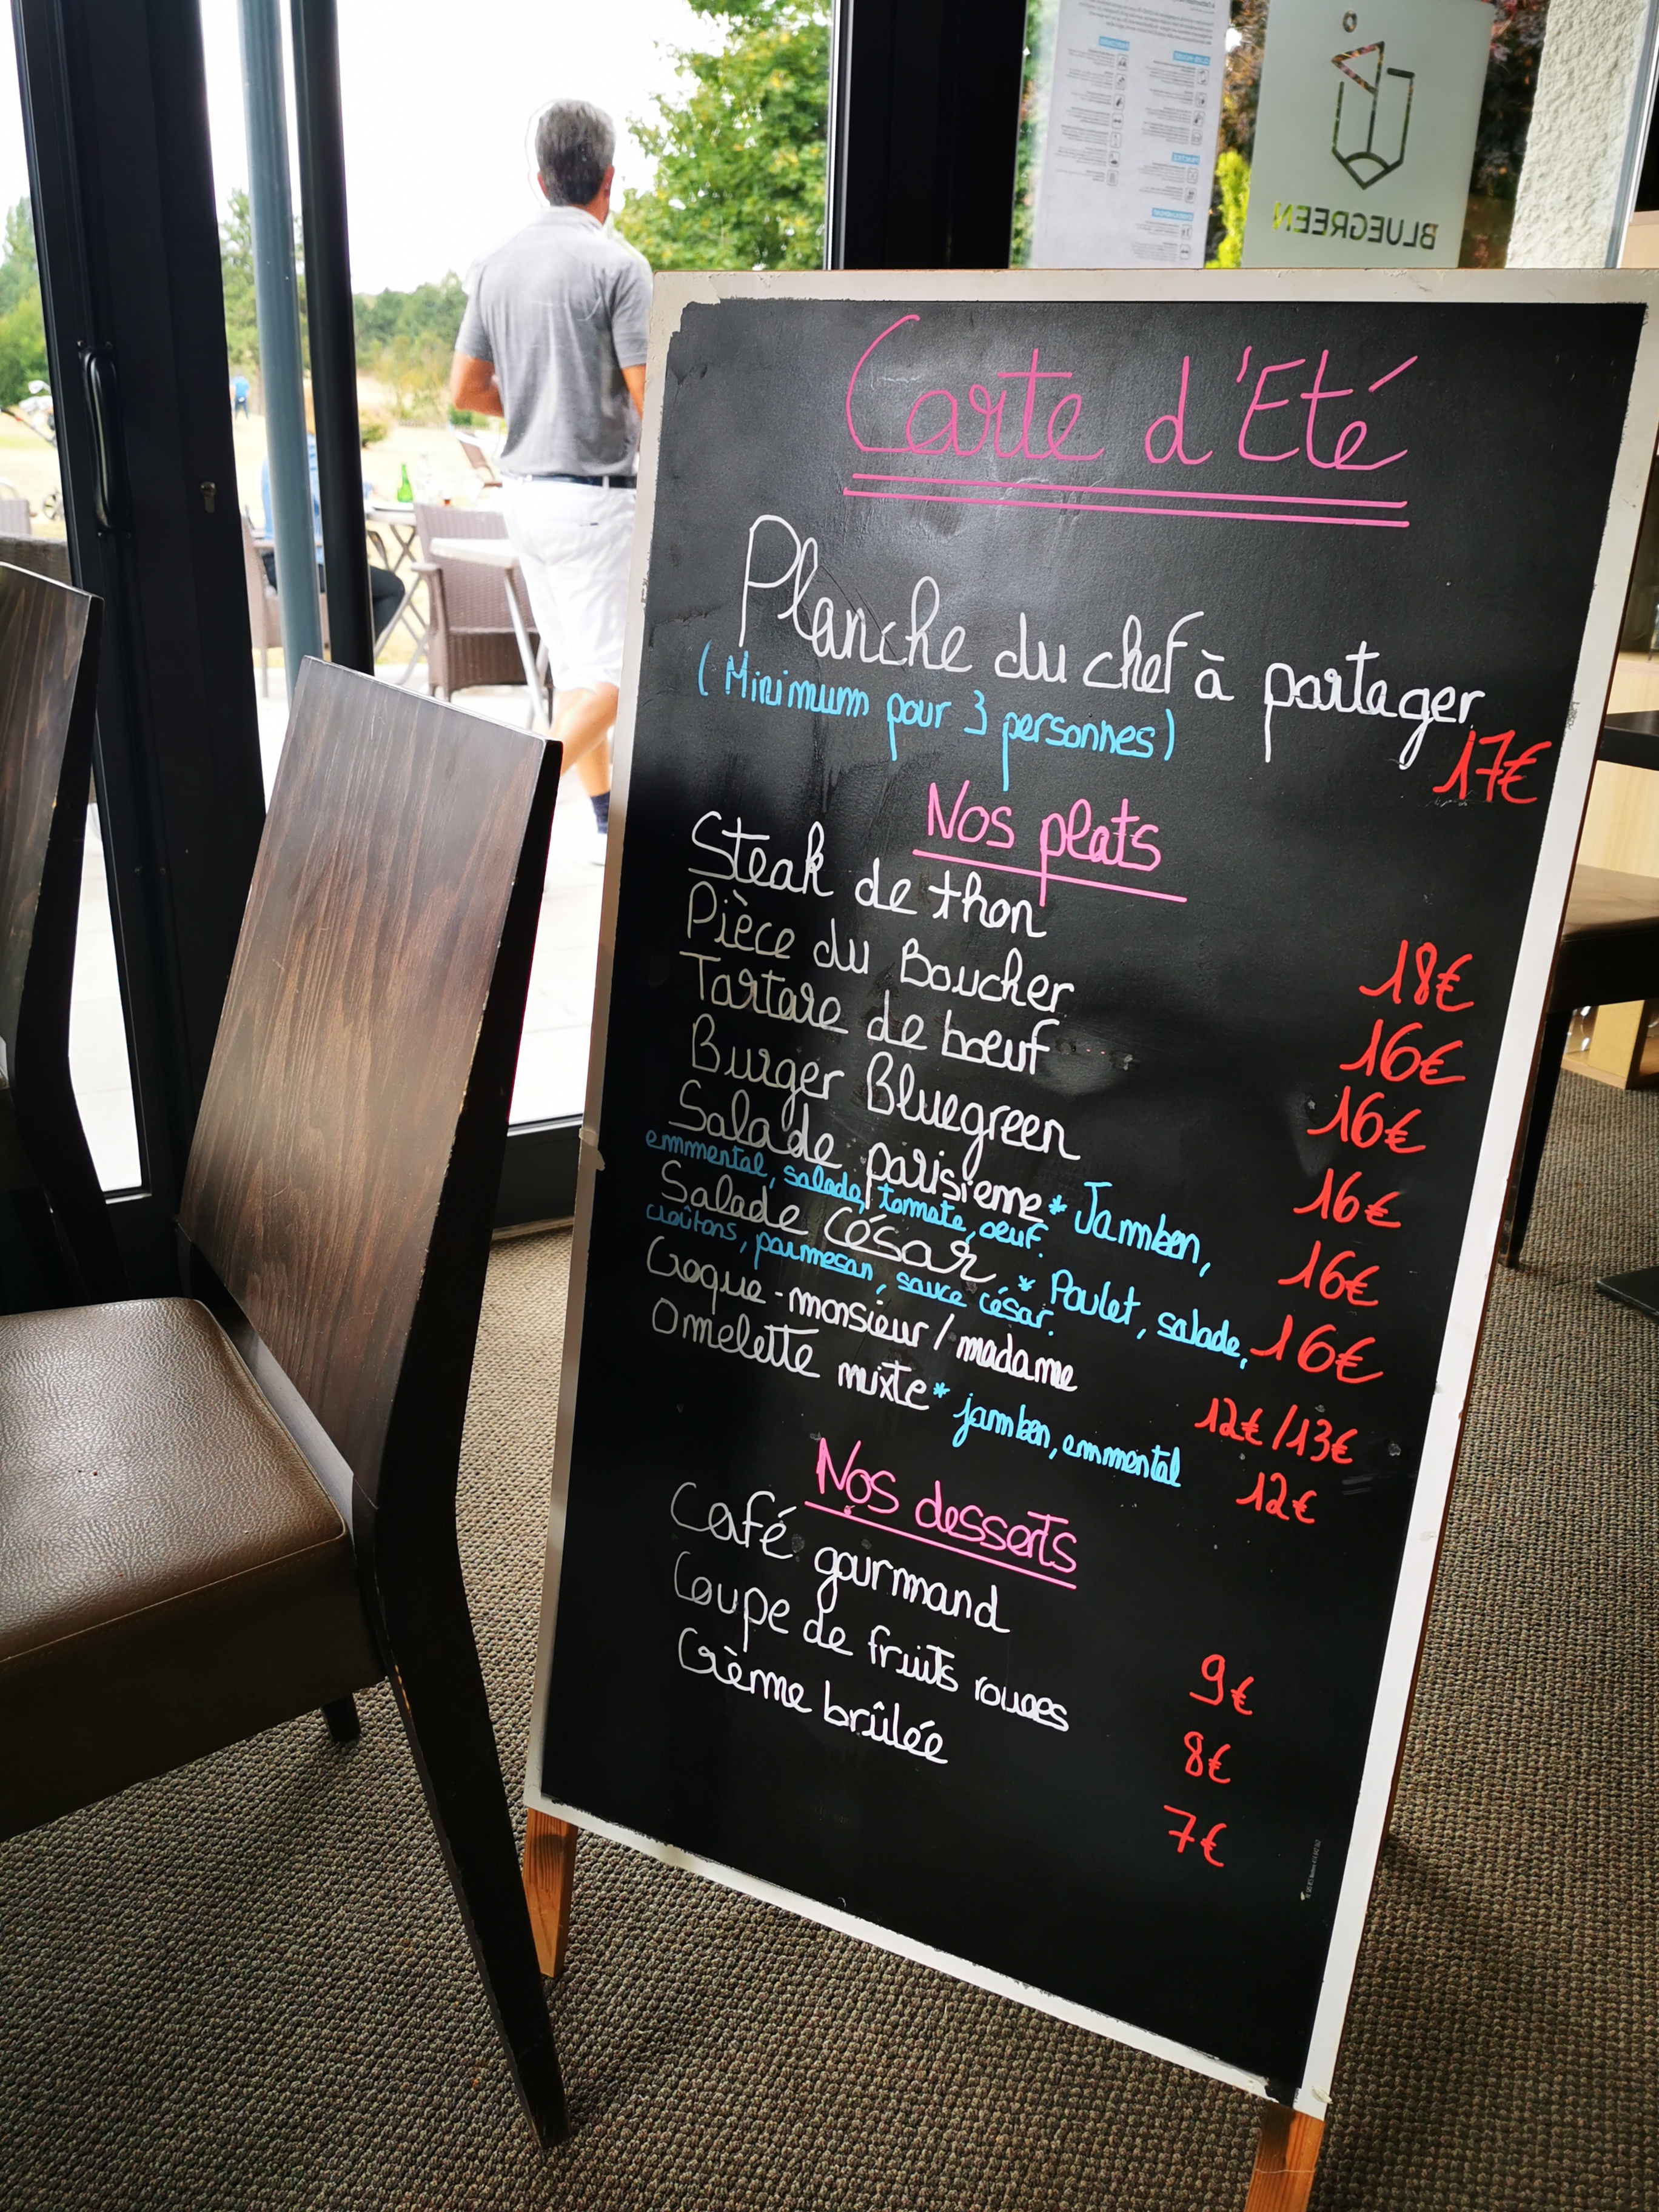 BLUEGREEN
Carte d'Eté
Planche du chef à partager
(Minimum pour 3 personnes)
17€
Nos plats
Steak de thon 18€
Pièce du Boucher 16€
Tartare de bœuf 16€
Burger Bluegreen 16€
Salade parisienne * Jambon, 16€
emmental, salade, tomate, oeuf.
Salade César * Poulet, salade, 16€
croûtons, parmesan, sauce césar.
Croque-monsieur / madame 12€/13€
Omelette mixte * jambon, emmental 12€
Nos desserts
Café gourmand 9€
Coupe de fruits rouges 8€
Crème brûlée 7€